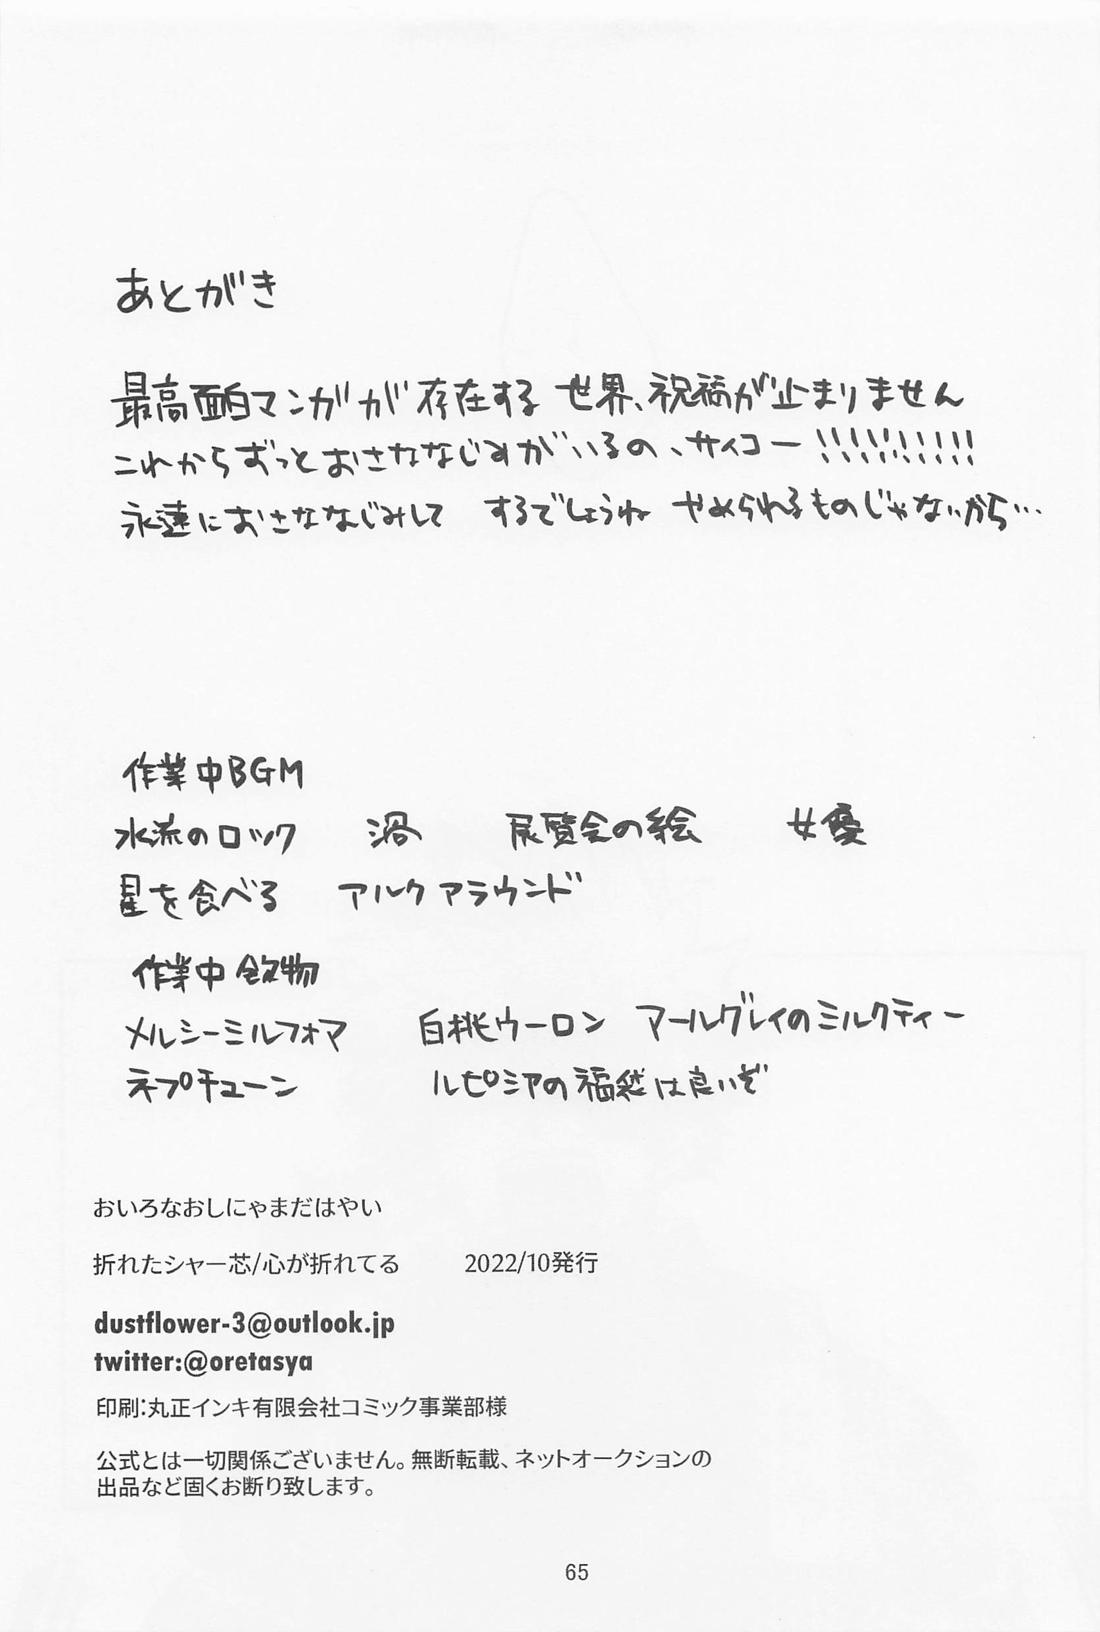 あとがき
最高面白マンガが存在する世界、祝福が止まりません
これからずっとおさななじみがいるの、サイコー!!!!!!!!!
永遠におさななじみして するでしょうね やめられるものじゃないから…
作業中BGM
水流のロック 渦 展覧会の絵 女優
星を食べる アルクアラウンド
作業中飲物
メルシーミルフォマ 白桃ウーロン アールグレイのミルクティー
ネプチューン ルピシアの福袋は良いぞ
おいろなおしにゃまだはやい
折れたシャー芯/心が折れてる 2022/10発行
dustflower-3@outlook.jp
twitter:@oretasya
印刷:丸正インキ有限会社コミック事業部様
公式とは一切関係ございません。無断転載、ネットオークションの
出品など固くお断り致します。
65